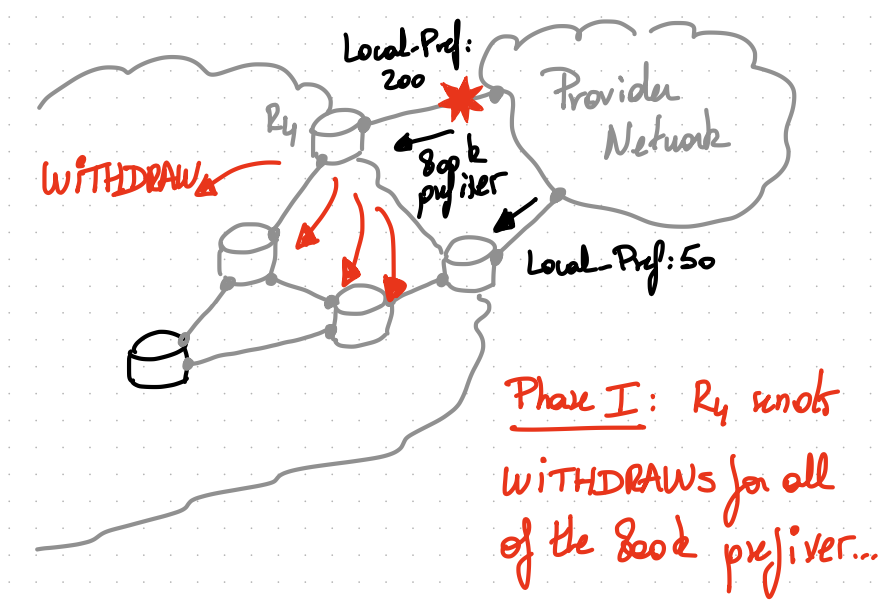 Local-Pref:
200
R4
Provider
Network
WITHDRAW
800k
prefixes
Local-Pref: 50
Phase I: R4 sends
WITHDRAWs for all
of the 800k prefixes...